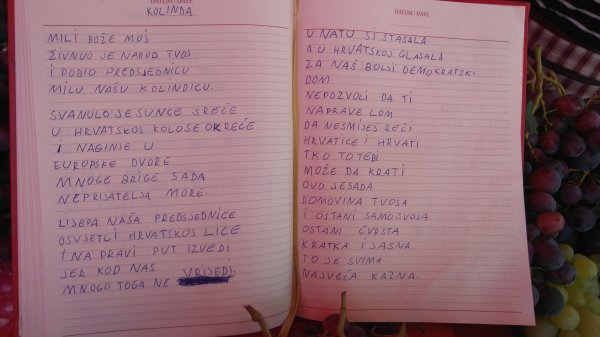 DATUM / DATE
KOLINDA
MILI BOŽE MOJ
ŽIVNUO JE NAROD TVOJ
I DOBIO PREDSJEDNICU
MILU NAŠU KOLINDICU.
SVANULO JE SUNCE SREĆE
U HRVATSKOJ KOLOSE OKREĆE
I NAGINJE U
EUROPSKE DVORE
MNOGE BRIGE SADA
NEPRIJATELJA MORE.
LIJEPA NAŠA PREDSJEDNICE
OSVJETLI HRVATSKOJ LICE
I NA PRAVI PUT IZVEDI
JER KOD NAS VRIJEDI
MNOGO TOGA NE
DATUM / DATE
U NATU SI STASALA
A U HRVATSKOJ GLASALA
ZA NAŠ BOLJI DEMOKRATSKI
DOM
NEPOZVOLI DA TI
NAPRAVE LOM
DA NESMIJEŠ REĆI
HRVATICE I HRVATI
TKO TO TEBI
MOŽE DA KRATI
OVO JE SADA
DOMOVINA TVOJA
I OSTANI SAMOSVOJA
OSTANI ČVRSTA
KRATKA I JASNA
TO JE SVIMA
NAJVEĆA KAZNA.